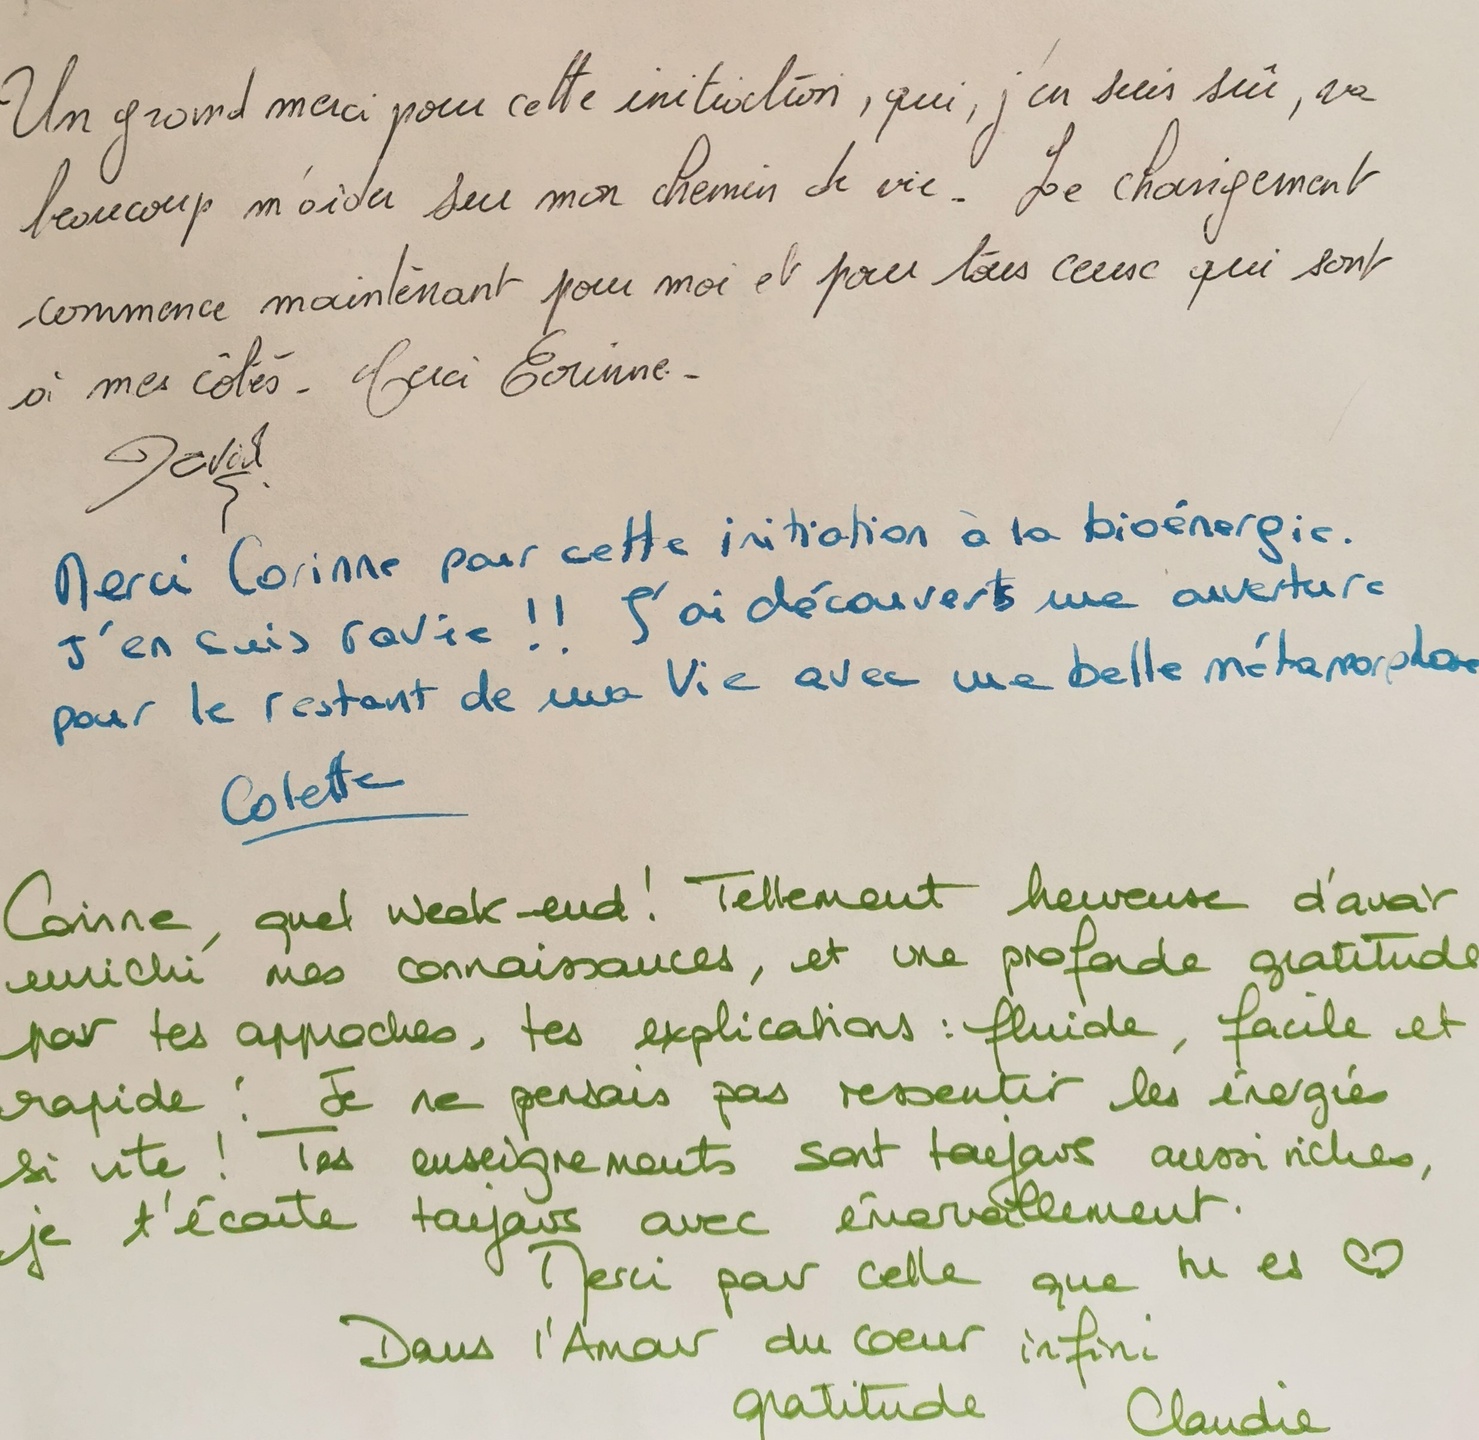 Un grand merci pour cette initiation, qui, j'en suis sûr, va
beaucoup m'aider sur mon chemin de vie. Le changement
commence maintenant pour moi et pour tous ceux qui sont
à mes côtés. Merci Corinne.
David
Merci Corinne pour cette initiation à la bioénergie.
J'en suis ravie !! J'ai découvert une ouverture
pour le restant de ma Vie avec une belle métamorphose
Colette
Corinne, quel week-end ! Tellement heureuse d'avoir
enrichi mes connaissances, et une profonde gratitude
pour tes approches, tes explications : fluide, facile et
rapide ! Je ne pensais pas ressentir les énergies
si vite ! Tes enseignements sont toujours aussi riches,
je t'écoute toujours avec émerveillement.
Merci pour celle que tu es ♡
Dans l'Amour du coeur infini
gratitude Claudie